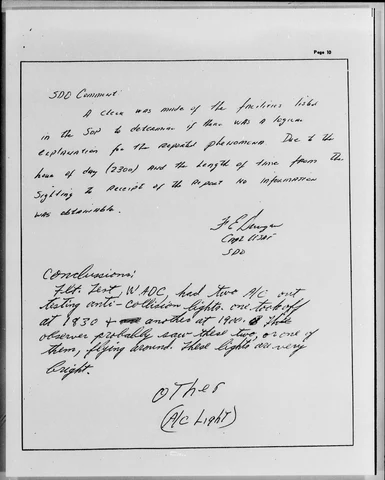 Page 10
SDO Comment
A check was made of the facilities listed
in the SOP to determine if there was a logical
explanation for the reported phenomena. Due to the
hour of day (2300) and the length of time from the
sighting to receipt of the report no information
was obtainable.
Capt USAF
SDO
Conclussions:
Flt. Test, WADC, had two A/C out
testing anti-collision lights. one took off
at 1830 + another at 1900. This
observer probably saw these two, or one of
them, flying around. These lights are very
bright.
OTher
(A/C Light)